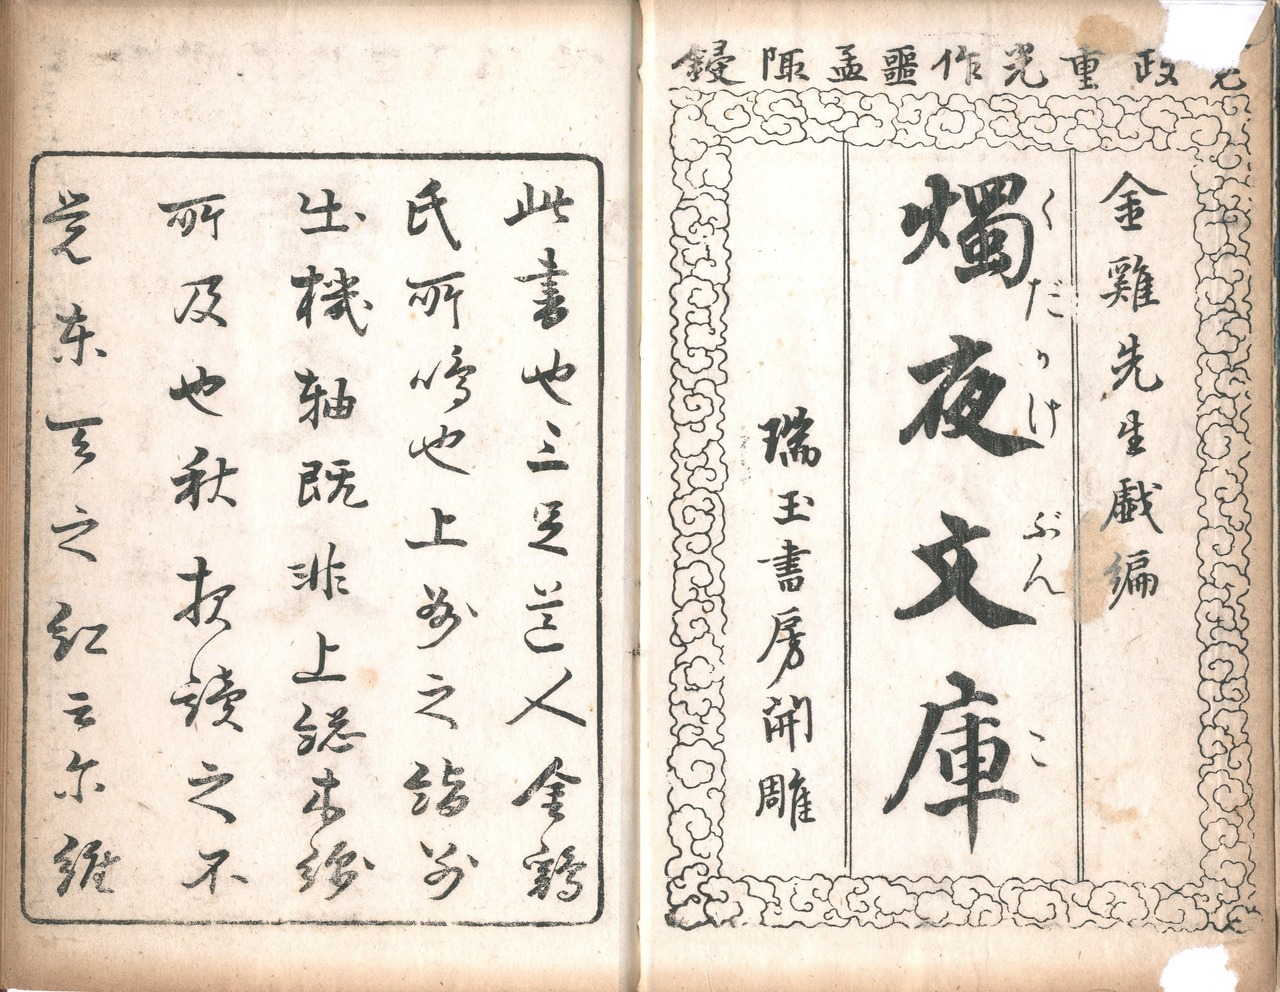 寛政重光作噩孟陬鋟
金雞先生戯編
燭夜文庫
くだかけぶんこ
瑞玉書房開雕
此書也三足道人金鶏
氏所鳴也上妙之語別
出機軸既非上総木綿
所及也秋夜讀之不
覚東天之紅云尔維